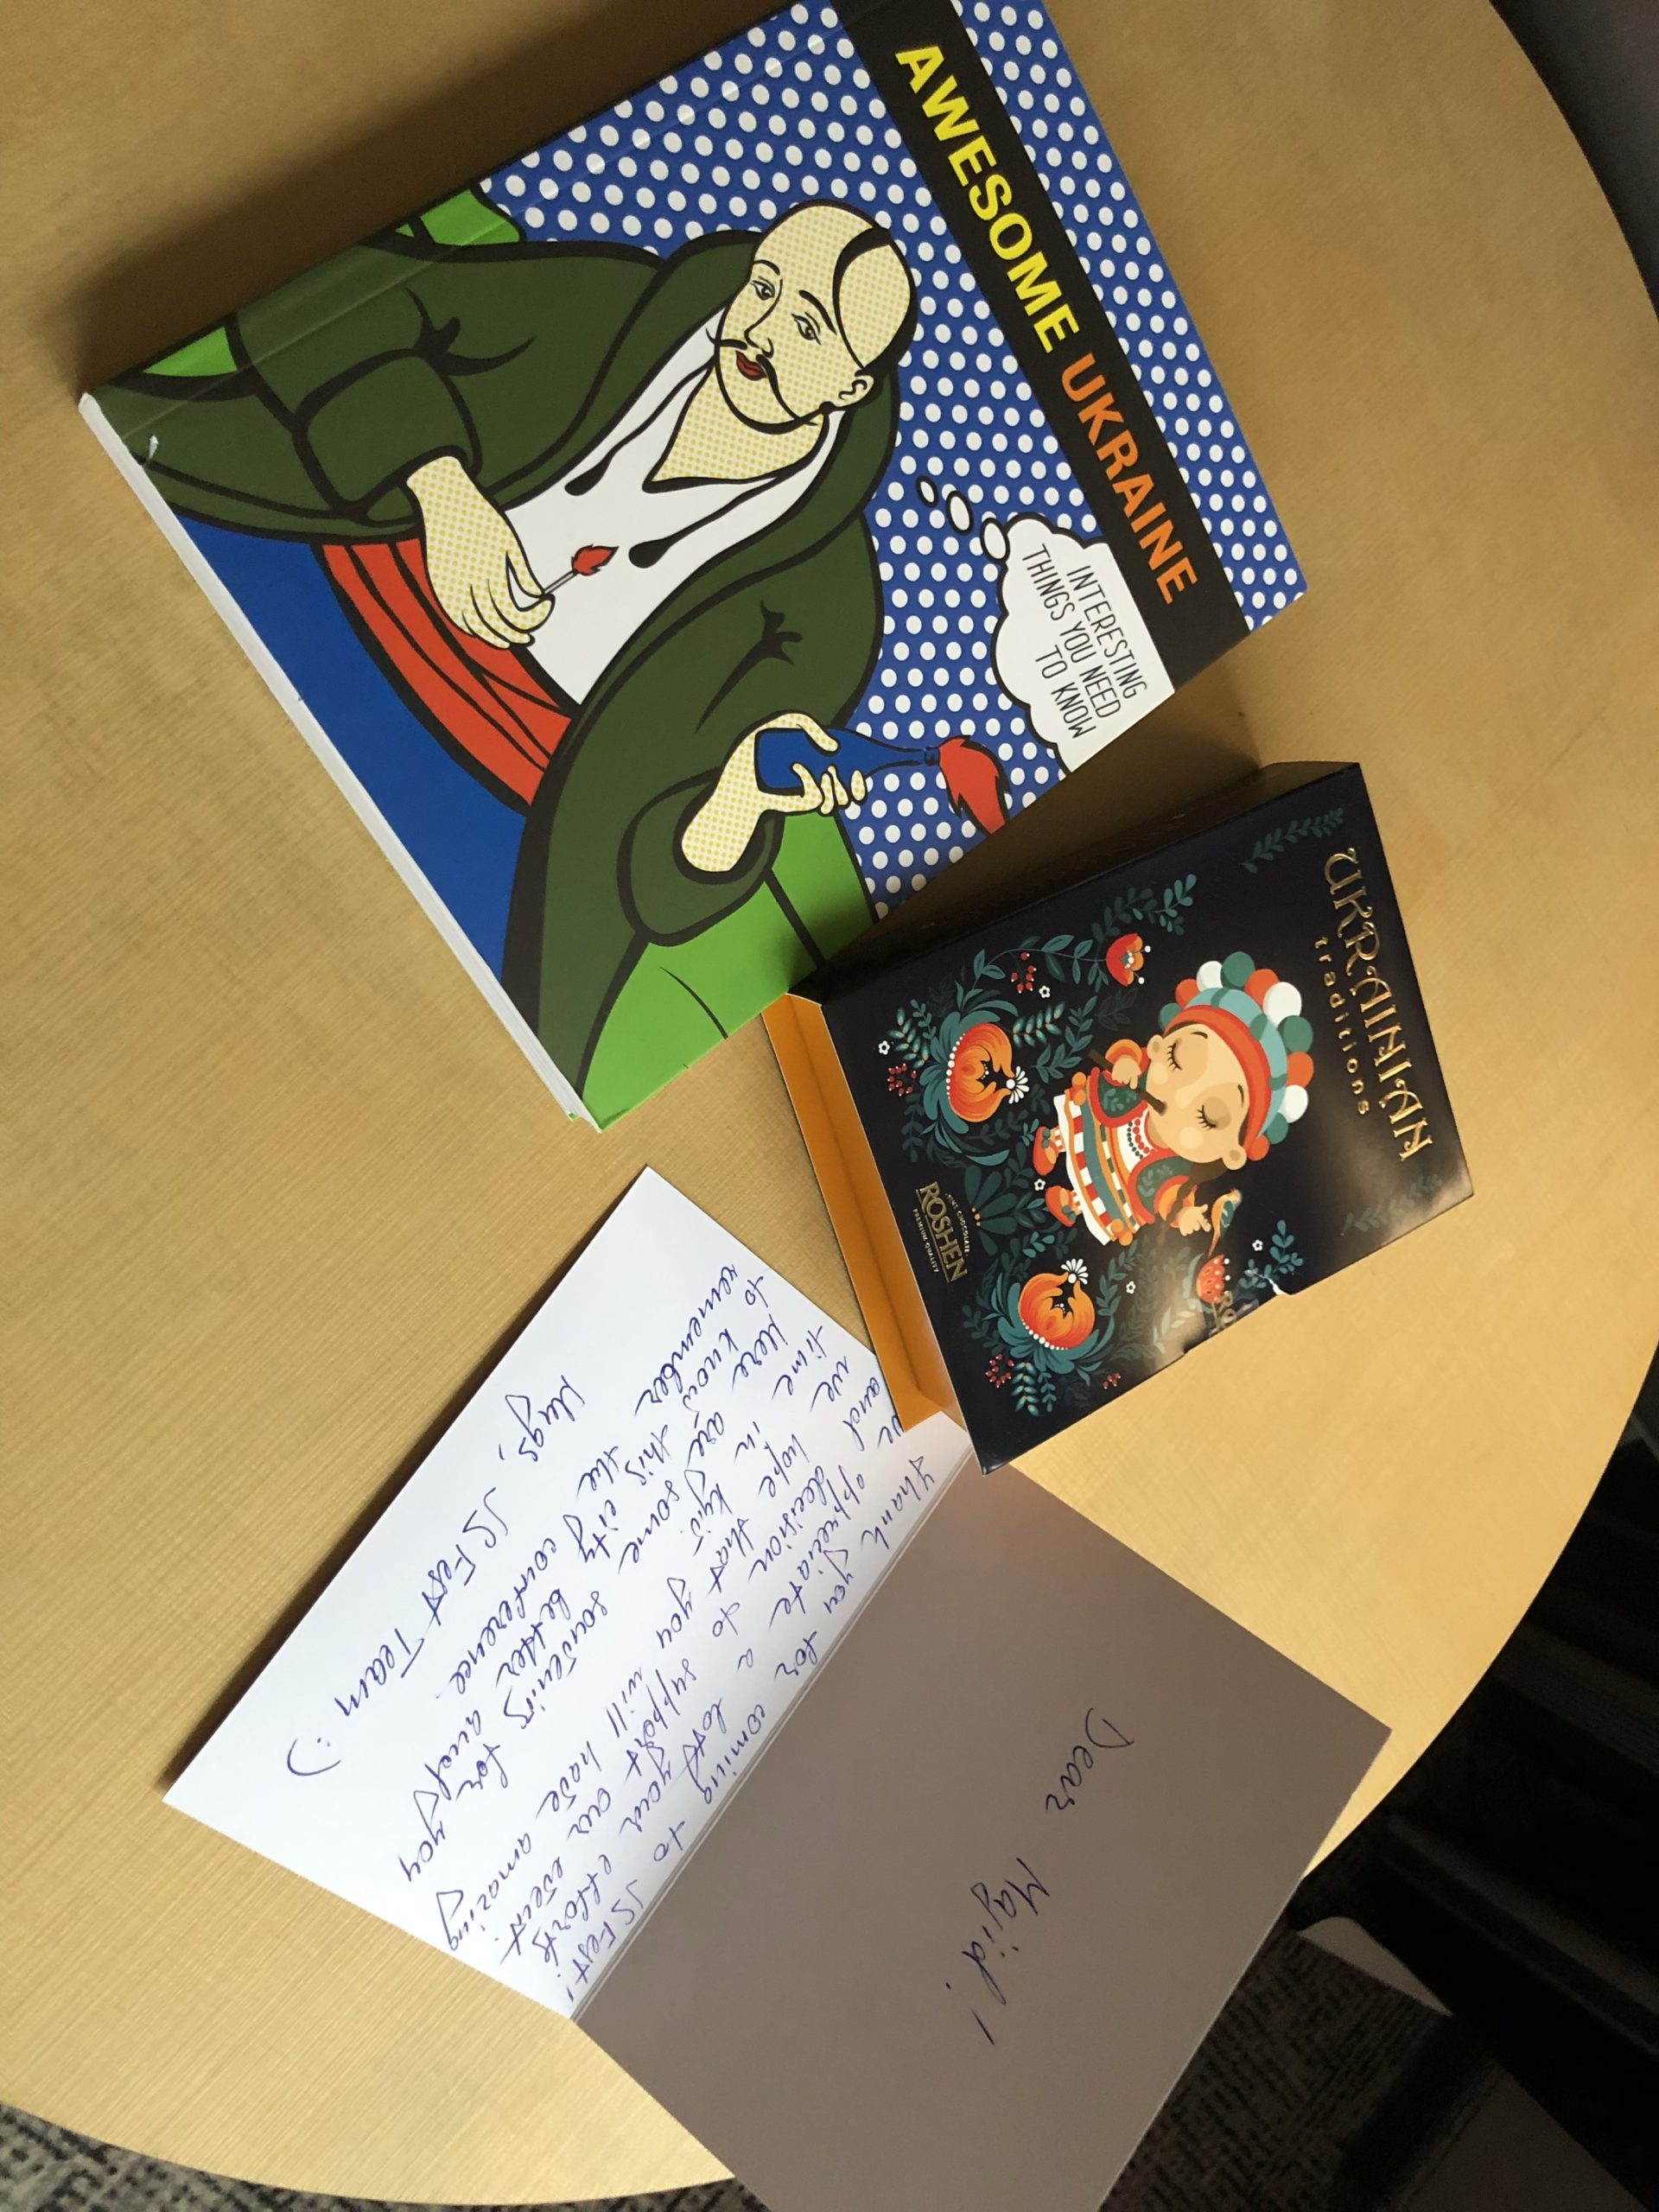 AWESOME UKRAINE
INTERESTING
THINGS YOU NEED
TO KNOW
UKRAINIAN
traditions
FINE CHOCOLATE
ROSHEN
PREMIUM QUALITY
RO
Dear Majid!
Thank you for coming to JS Fest!
we appreciate a lot your efforts
and decision to support our event.
we hope that you will have amazing
time in Kyiv.
Here are some souvenirs for you
to know this city better and
remember the conference.
Hugs, JS Fest Team :)